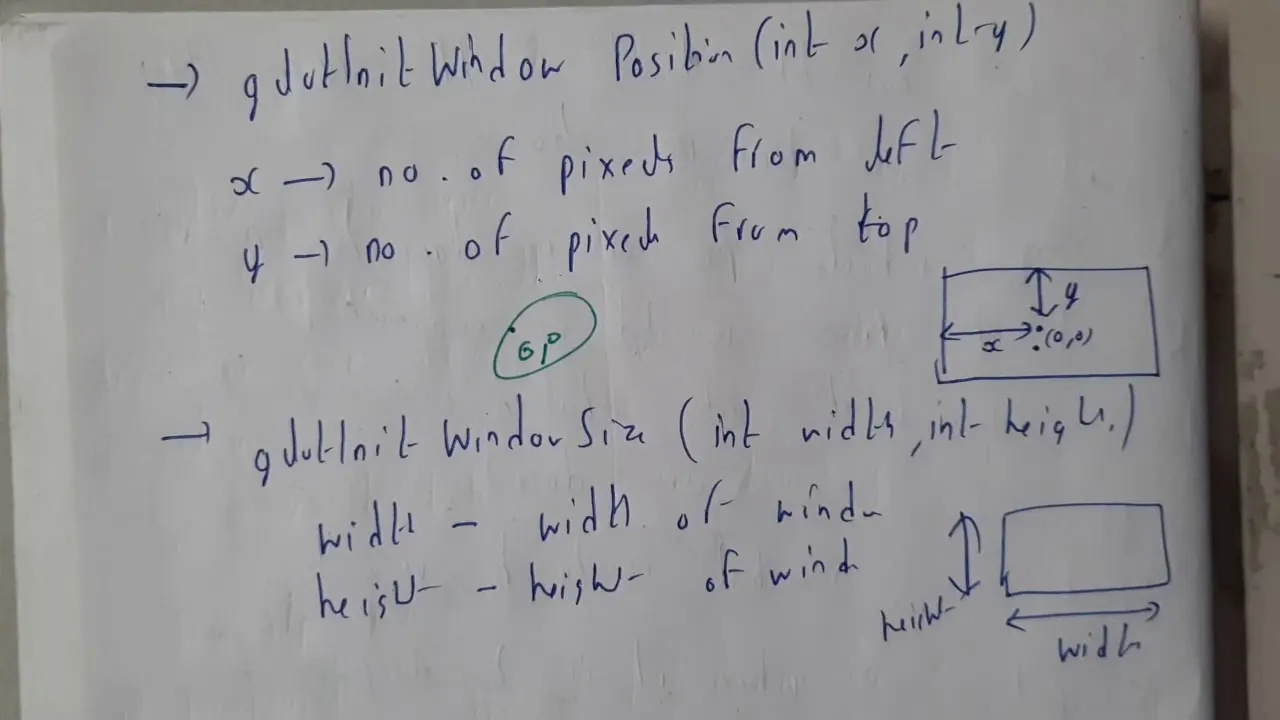 → glutInitWindow Position (int x, int y)
x → no. of pixels from left
y → no. of pixels from top
y
x
(0,0)
→ glutInit Window Size (int width, int height)
width - width of windo
height - height of wind
height
width